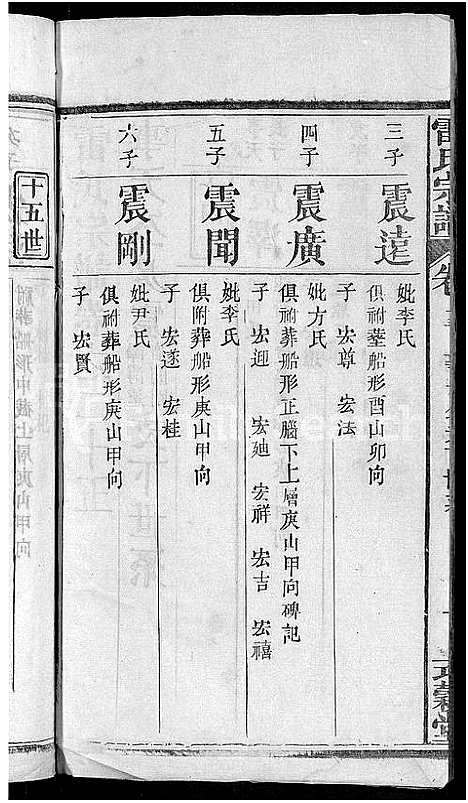 雷氏宗譜
三子
震遠
妣李氏
俱祔塟船形酉山卯向
子 宏尊 宏法
四子
震廣
妣方氏
俱祔葬船形正腦下上層庚山甲向碑記
子 宏迎 宏廸 宏祥 宏吉 宏禧
五子
震聞
妣李氏
俱附葬船形庚山甲向
子 宏遂 宏桂
六子
震剛
妣尹氏
俱祔葬船形庚山甲向
子 宏賢
十五世